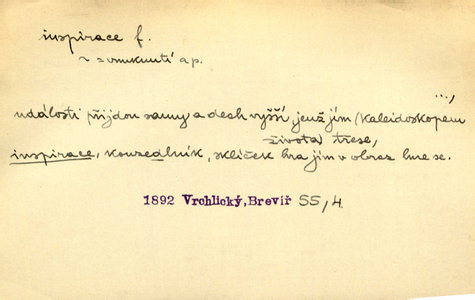 inspirace f.
~ vnuknutí ap.
...,
události přijdou samy a dech vyšší, jenž jím (kaleidoskopem
života) třese,
inspirace, kouzedlník, sklíček hra jím v obraz hne se.
1892 Vrchlický, Breviř 55/4